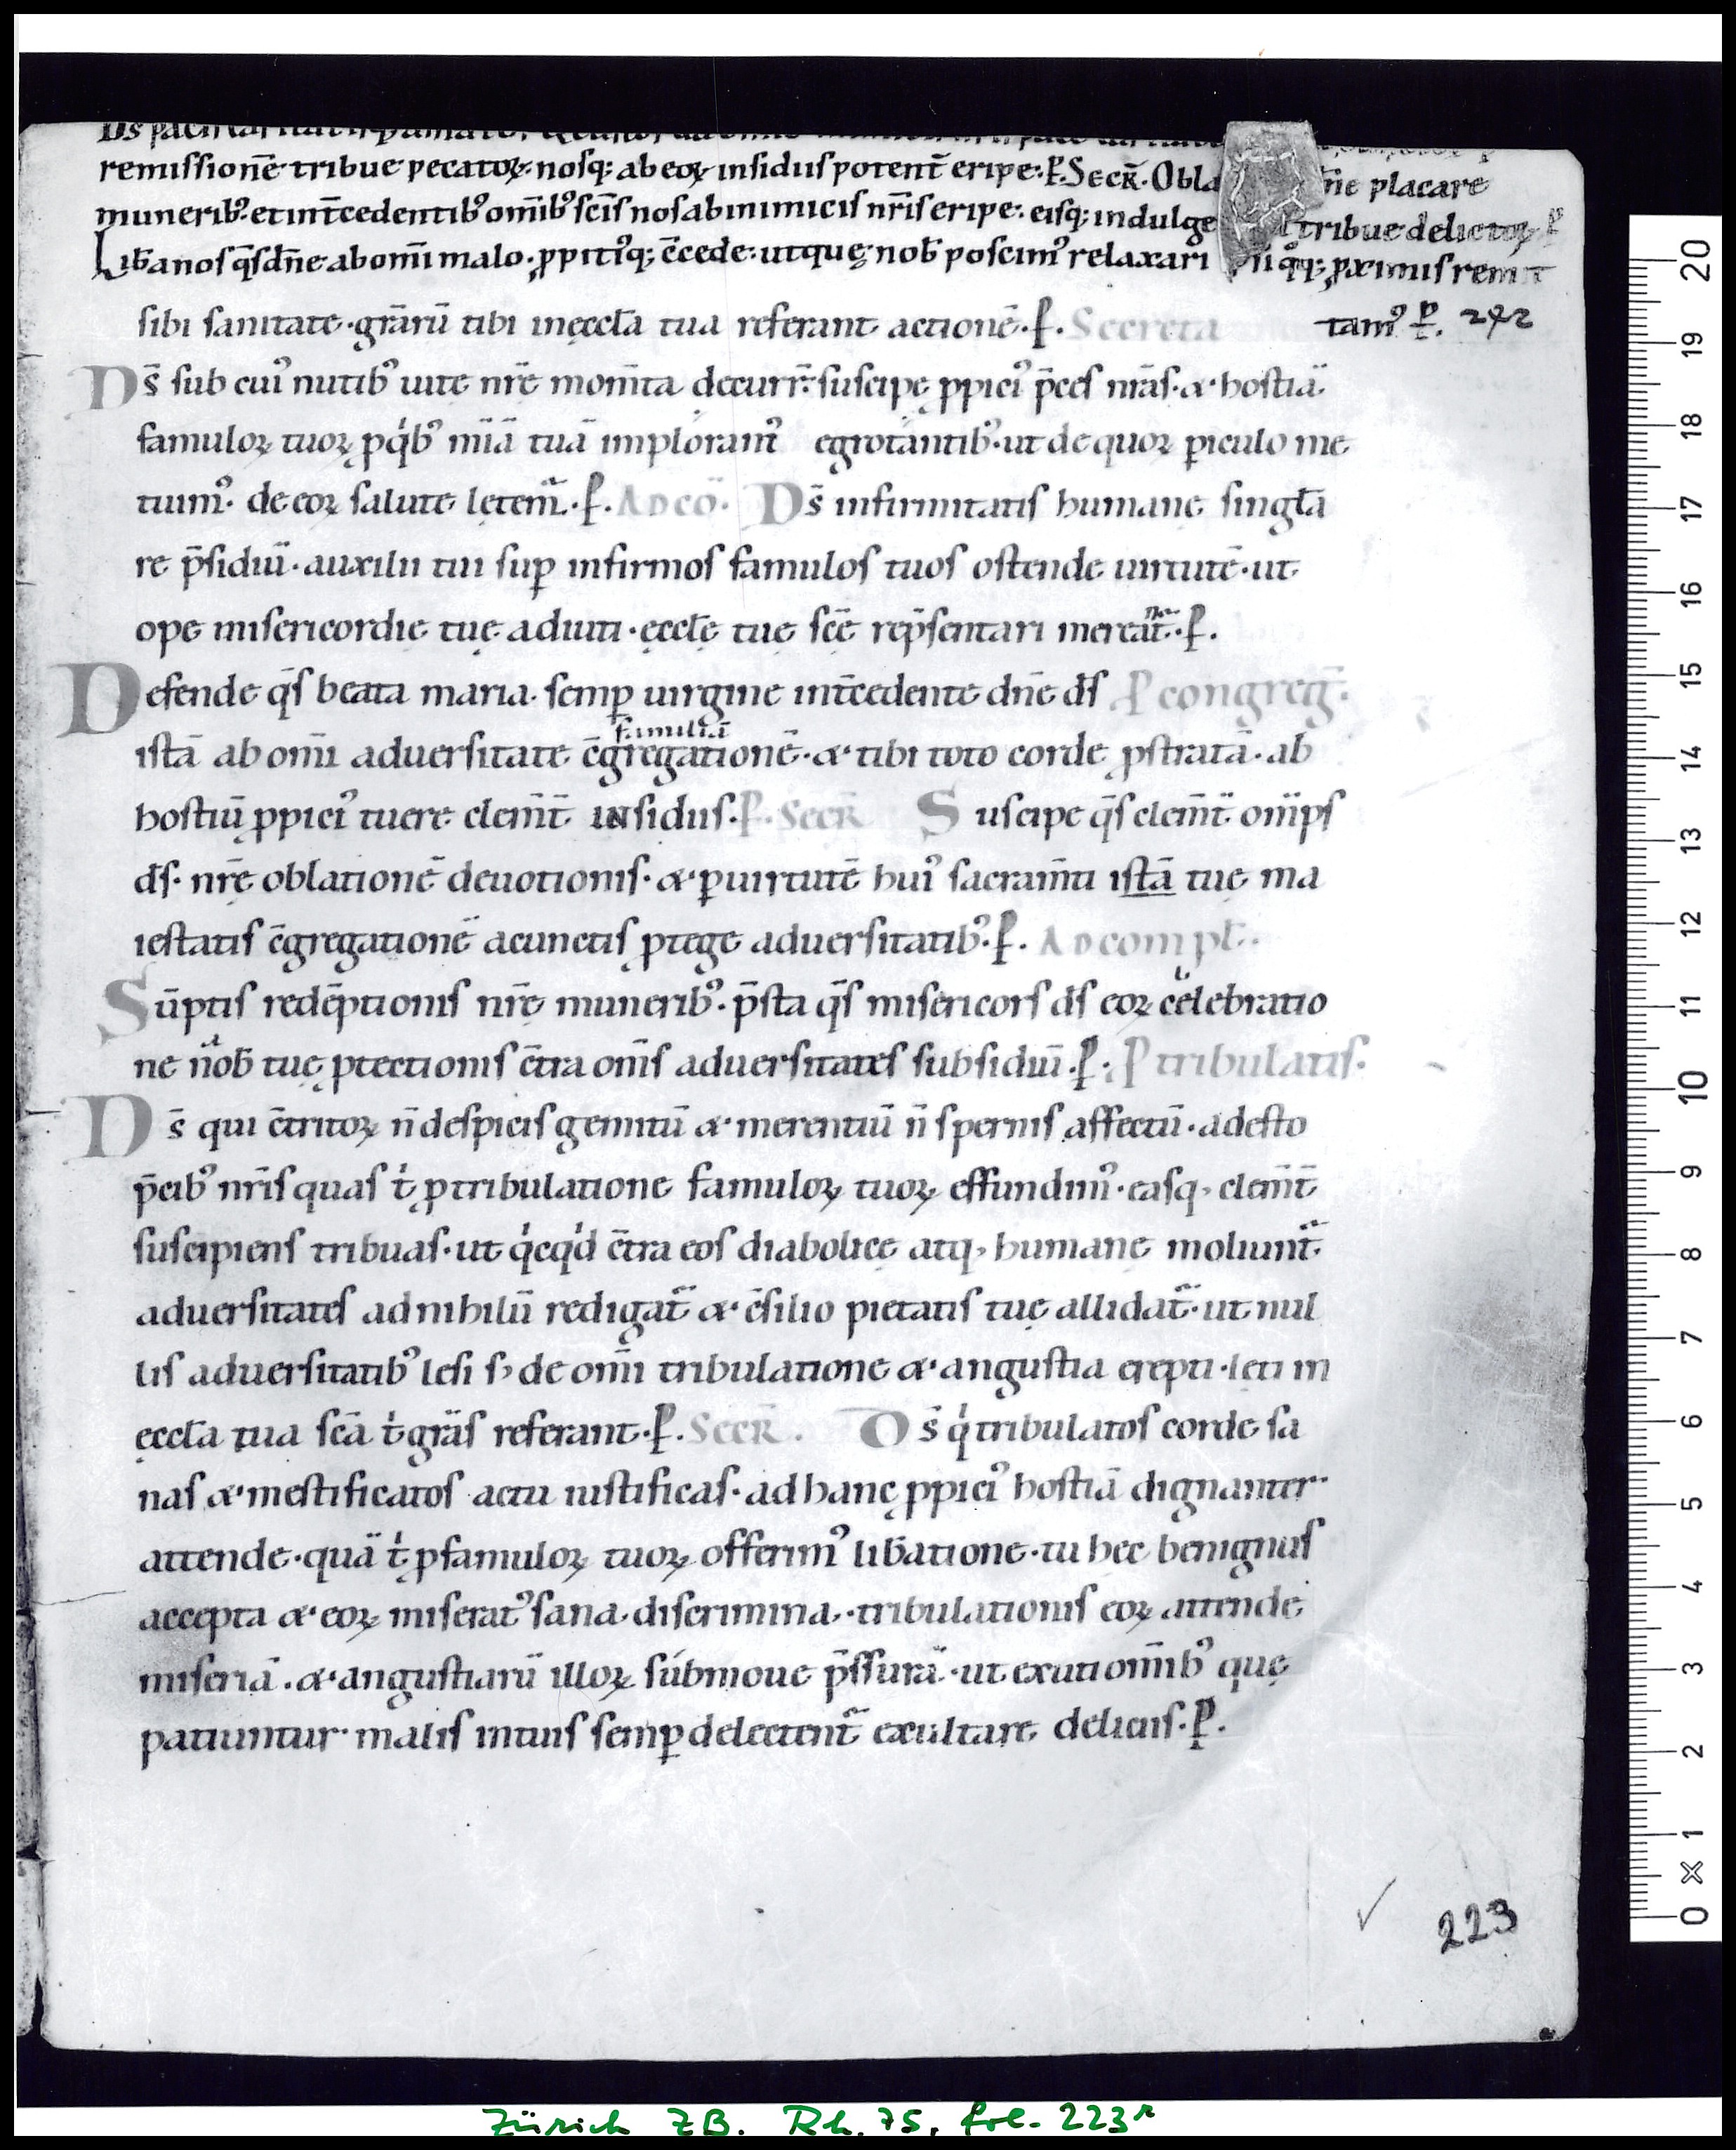 remissionē tribue pecatoꝝ. nosq; ab eoꝝ insidiis potent̄ eripe. ꝑ. Secr̄. Obla ñe placare
munerib᷒. et int̄cedentib᷒ om̄ib᷒ scīs nos ab inimicis nr̄is eripe. eisq; indulge tribue delictoꝝ ꝑ
Lib̄a nos q̄s dn̄e ab om̄i malo. ꝓpiti᷒q; c̄cede. ut quę nob̄ poscim᷒ relaxari ꝓximis remit
sibi sanitate. gr̄arū tibi in ęccl̄a tua referant actionē. ꝑ. Secreta tam᷒ ꝑ. 242
Ds̄ sub cui᷒ nutib᷒ uitę nr̄ę mom̄ta decurr̄. suscipe ꝓpici᷒ p̄ces nr̄as. & hostiā
famuloꝝ tuoꝝ ꝓ qͥb᷒ mīā tuā imploram᷒ egrotantib᷒. ut de quoꝝ ꝑiculo me
tuim᷒. de eoꝝ salute lętem̄. ꝑ. Ad cō. Ds̄ infirmitatis humanę singl̄a
re p̄sidiū. auxilii tui suꝑ infirmos famulos tuos ostende uirtutē. ut
ope misericordię tuę adiuti. ęccl̄ę tuę scē rep̄sentari mereāt̄. ꝑ.
Defende q̄s beata maria semꝑ uirgine int̄cedente dn̄e ds̄ P congreḡ.
istā ab om̄i aduersitate c̄gregationē. & tibi toto corde ꝓstratā. ab
familiā
hostiū ꝓpici᷒ tuere clem̄t̄ insidiis. ꝑ. Secr̄ Suscipe q̄s clem̄t̄ om̄ips
ds̄. nr̄ę oblationē deuotionis. & ꝑ uirtutē hui᷒ sacram̄ti istā tuę ma
iestatis c̄gregationē a cunctis ꝓtege aduersitatib᷒. ꝑ. Ad compl̄.
Sūptis redēptionis nr̄ę munerib᷒. p̄sta q̄s misericors ds̄ eoꝝ celebratio
ne nob̄ tuę ꝓtectionis c̄tra om̄s aduersitates subsidiū. ꝑ. P tribulatis.
Ds̄ qui c̄tritoꝝ n̄ despicis gemitū & merentiū n̄ spernis affectū. adesto
p̄cib᷒ nr̄is quas tͥ ꝓ tribulatione famuloꝝ tuoꝝ effundim᷒. easq; clem̄t̄
suscipiens tribuas. ut qͥcqͥd c̄tra eos diabolicę atq; humanę moliunt̄
aduersitates ad nihilū redigat̄ & c̄silio pietatis tuę allidat̄. ut nul
lis aduersitatib᷒ lesi s; de om̄i tribulatione & angustia erepti. lęti in
ęccl̄a tua scā tͥ grās referant. ꝑ. Secr̄. Ds̄ qͥ tribulatos corde sa
nas & mestificatos actu iustificas. ad hanc ꝓpici᷒ hostiā dignanter
attende. quā tͥ ꝓ famuloꝝ tuoꝝ offerim᷒ lib̄atione. tu hec benignus
accepta & eoꝝ miserat᷒ sana discrimina. tribulationis eoꝝ attende
miseriā. & angustiarū illoꝝ submoue p̄ssurā. ut exuti om̄ib᷒ quę
patiuntur malis in tuis semꝑ delectent̄ exultare deliciis. ꝑ.
223
Zürich ZB. Rh. 75, fol. 223r
0 1 2 3 4 5 6 7 8 9 10 11 12 13 14 15 16 17 18 19 20